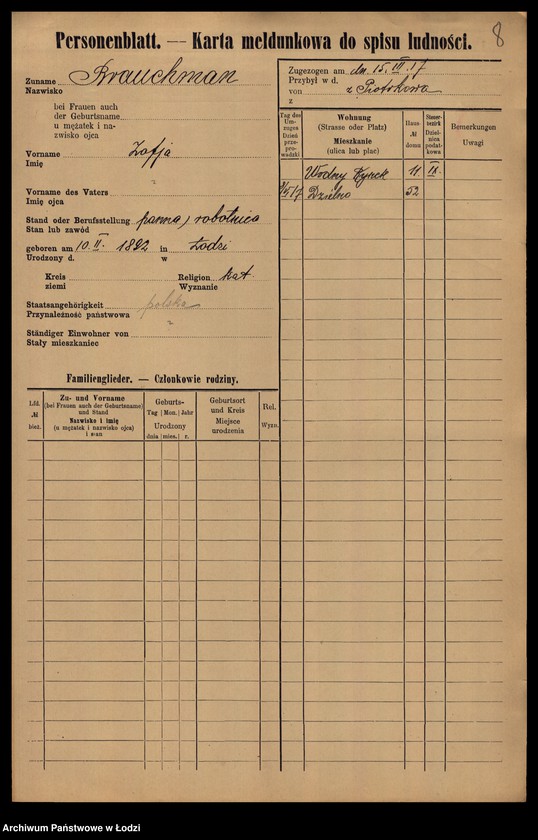 8
Personenblatt. — Karta meldunkowa do spisu ludności.
Zuname Brauchman
Nazwisko
bei Frauen auch
der Geburtsname
u mężatek i na-
zwisko ojca
Vorname Zofja
Imię
Vorname des Vaters
Imię ojca
Stand oder Berufsstellung panna, robotnica
Stan lub zawód
geboren am 10. II. 1892 in Łodzi
Urodzony d. w
Kreis Religion kat.
ziemi Wyznanie
Staatsangehörigkeit polska
Przynależność państwowa
Ständiger Einwohner von
Stały mieszkaniec
Zugezogen am dn. 15. III. 17
Przybył w d.
von z Piotrkowa
z
Tag des Um-zuges Dzień prze-pro-wadzki
Wohnung (Strasse oder Platz) Mieszkanie (ulica lub plac)
Haus- № domu
Steuer-bezirk Dziel-nica podat-kowa
Bemerkungen Uwagi
Wodny Rynek 11 IX.
Dzielna 52
Familienglieder. — Członkowie rodziny.
Lfd. № bież.
Zu- und Vorname (bei Frauen auch der Geburtsname) und Stand Nazwisko i imię (u mężatek i nazwisko ojca) i stan
Geburts- Tag Mon. Jahr Urodzony dnia mies. r.
Geburtsort und Kreis Miejsce urodzenia
Rel. Wyzn.
Archiwum Państwowe w Łodzi